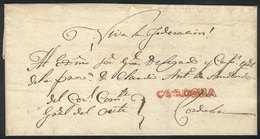 ¡Viva la Federacion!
Al Exmo Sor Gov. Delegado y Cap.
de la Prov.ª Dn Claudio Ant.º de Arredondo
del Cor.l Com.te
Gral del Oeste
CORDOBA
Cordoba